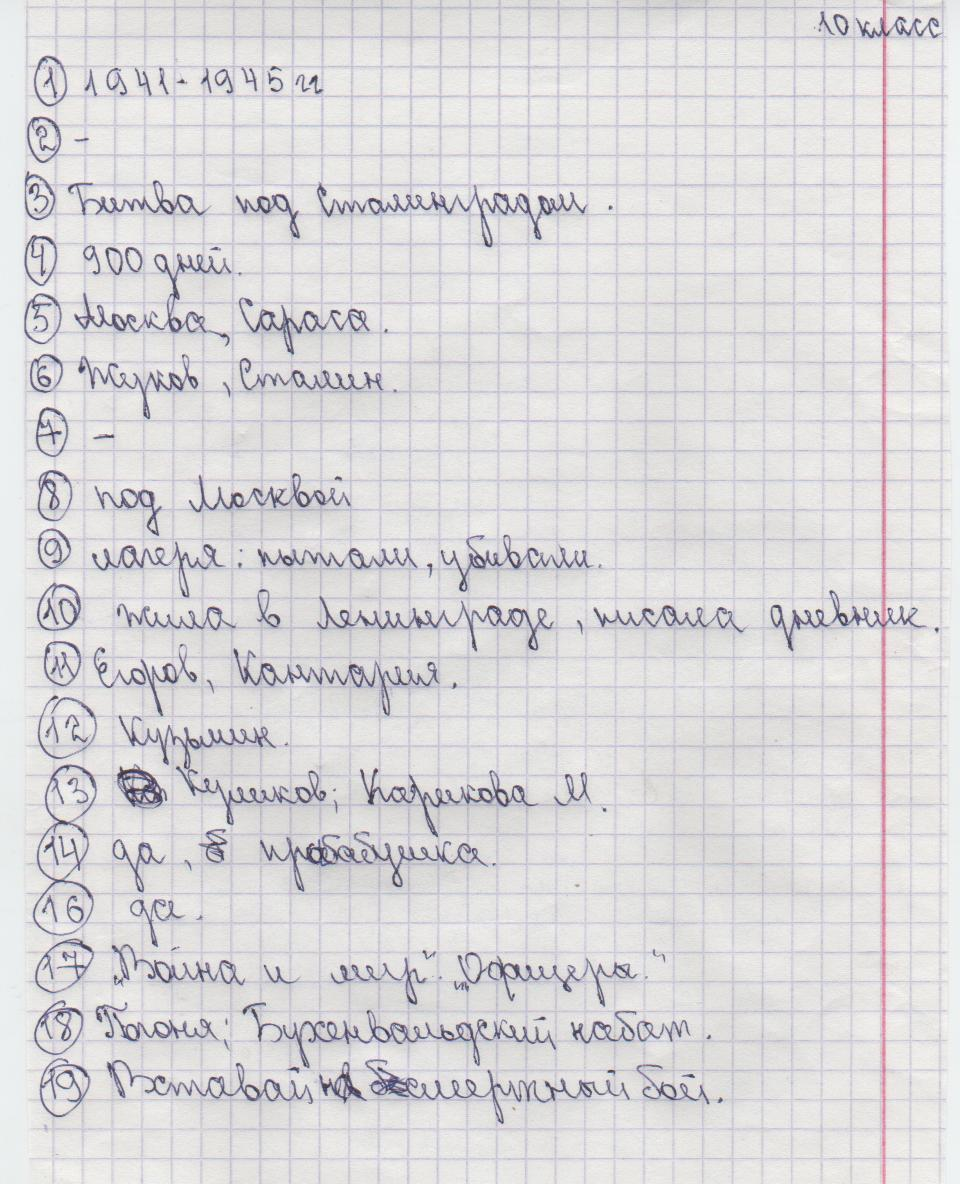 10 класс
1 1941-1945 гг
2 -
3 Битва под Сталинградом.
4 900 дней.
5 Москва, Сараса.
6 Жуков, Сталин.
7 -
8 под Москвой
9 лагеря: пытали, убивали.
10 жила в Ленинграде, писала дневник.
11 Егоров, Кантария.
12 Кузьмин.
13 Куликов; Карикова М.
14 да, прабабушка.
16 да.
17 „Война и мир". „Офицеры."
18 Погоня; Бухенвальдский набат.
19 Вставай на смертный бой.